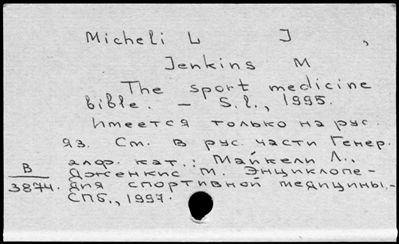 Micheli L J ,
Jenkins M
The sport medicine
bible. – S.l., 1995.
Имеется только на рус.
яз. См. в рус. части Генер.
алф. кат.: Майкели Л.,
Дженкис М. Энциклопе-
В
3874. дия спортивной медицины.-
СПб., 1997.